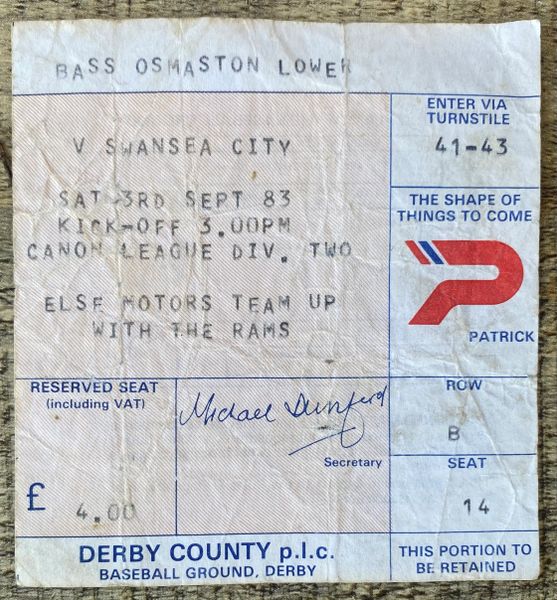 BASS OSMASTON LOWER
V SWANSEA CITY
SAT 3RD SEPT 83
KICK-OFF 3.00PM
CANON LEAGUE DIV. TWO
ELSE MOTORS TEAM UP
WITH THE RAMS
ENTER VIA
TURNSTILE
41-43
THE SHAPE OF
THINGS TO COME
PATRICK
RESERVED SEAT
(including VAT)
£ 4.00
Michael Dunford
Secretary
ROW
B
SEAT
14
DERBY COUNTY p.l.c.
BASEBALL GROUND, DERBY
THIS PORTION TO
BE RETAINED